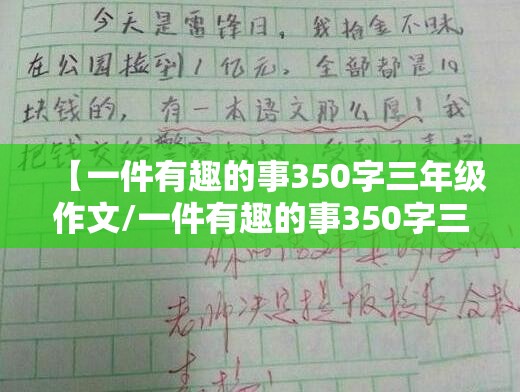 今天是雷锋日，我拾金不昧，
在公园捡到1亿元，全部都是10
块钱的，有一本语文那么厚！我
把钱交给警察叔叔，
【一件有趣的事350字三年级
作文/一件有趣的事350字三
老师决定提报校长全校
表扬！